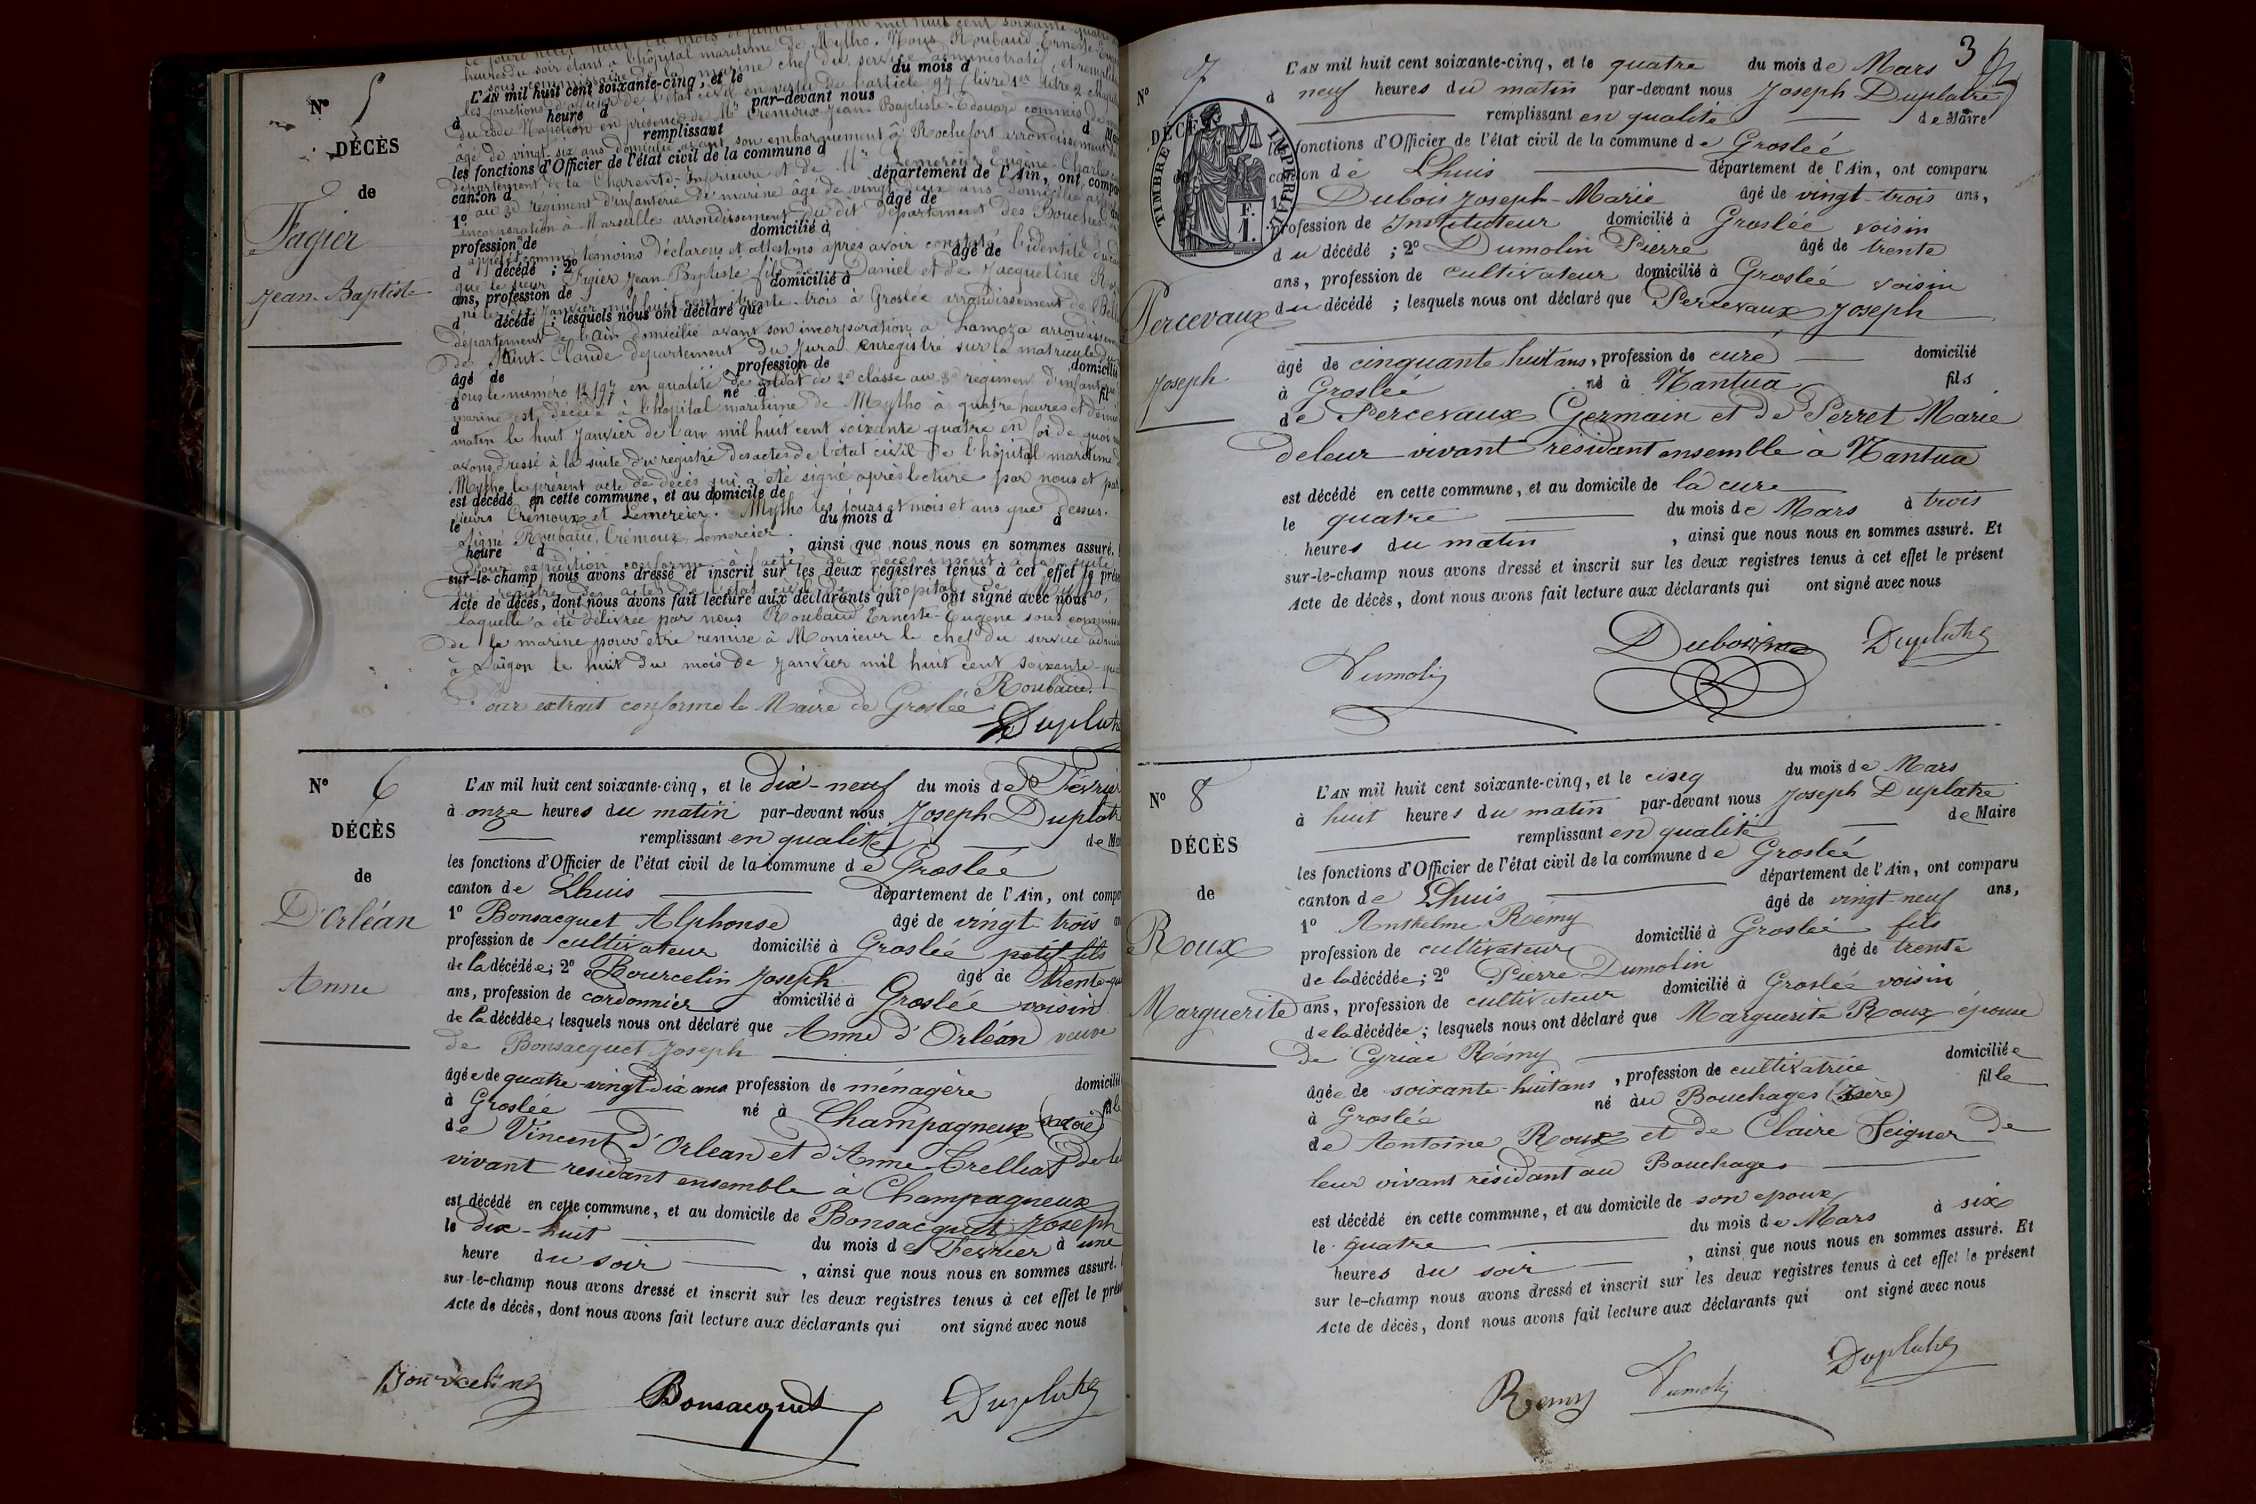 N° 5
DÉCÈS
de
Fagier
Jean-Baptiste
heures du soir étant à l'hôpital maritime de Mytho. Nous Roubaud Erneste Eugène
sous commissaire de la marine chef du service administratif, et remplissant
L'AN mil huit cent soixante-cinq, et le du mois d
les fonctions d'officier de l'état civil en vertu de l'article 97 livre 1er titre 2 chapitre
à heure d par-devant nous
du code Napoléon en présence de Mr Crémoux Jean-Baptiste-Edouard commis de
remplissant d
âgé de vingt-six ans domicilié avant son embarquement à Rochefort arrondissement du
les fonctions d'Officier de l'état civil de la commune d
département de la Charente-Inférieure et de Mr Lemercier Eugène-Charles
canton d département de l'Ain, ont comparu
au 3e régiment d'infanterie de marine âgé de vingt deux ans domicilié avant
1° âgé de
incorporation à Marseille arrondissement du dit département des Bouches
profession de domicilié à
appelés comme témoins déclarons et attestons après avoir constaté l'identité du
d décédé ; 2° âgé de
que le sieur Figier Jean-Baptiste fils de Daniel et de Jacqueline
ans, profession de domicilié à
né le janvier mil huit cent trente-trois à Groslée arrondissement de
d décédé ; lesquels nous ont déclaré que
département de l'Ain domicilié avant son incorporation à Lamoza arrondissement
de Saint-Claude département du Jura enregistré sur la matricule
âgé de profession de domicilié
sous le numéro 12197 en qualité de soldat de 2e classe au 3e régiment d'infanterie
à né à fil
marine est décédé à l'hôpital maritime de Mytho à quatre heures et demie
d
matin le huit janvier de l'an mil huit cent soixante quatre en foi de quoi
avons dressé à la suite du registre des actes de l'état civil de l'hôpital maritime
Mytho le présent acte de décès qui a été signé après lecture par nous et par
est décédé en cette commune, et au domicile de
sieurs Crémoux et Lemercier. Mytho les jours et mois et ans que dessus.
le du mois d à
Signé Roubaud, Crémoux, Lemercier.
heure d , ainsi que nous nous en sommes assuré.
Pour expédition conforme à l'acte de décès inscrit à la suite
sur-le-champ nous avons dressé et inscrit sur les deux registres tenus à cet effet le
du registre des actes de l'état civil de l'hôpital de Mytho,
Acte de décès, dont nous avons fait lecture aux déclarants qui ont signé avec nous
laquelle a été délivrée par nous Roubaud Erneste-Eugène sous
de la marine pour être remise à Monsieur le chef du service
à Saïgon le huit du mois de janvier mil huit cent soixante-
Roubaud.
Pour extrait conforme le Maire de Groslée
Duplatre
N° 6
DÉCÈS
de
D'Orléan
Anne
L'AN mil huit cent soixante-cinq, et le dix-neuf du mois de Février
à onze heures du matin par-devant nous Joseph Duplatre
remplissant en qualité de
les fonctions d'Officier de l'état civil de la commune de Groslée
canton de Lhuis département de l'Ain, ont
1° Bonsacquet Alphonse âgé de vingt trois
profession de cultivateur domicilié à Groslée petit fils
de la décédée; 2° Bourcelin Joseph âgé de trente-
ans, profession de cordonnier domicilié à Groslée voisin
de la décédée; lesquels nous ont déclaré que Anne d'Orléan veuve
de Bonsacquet Joseph
âgée de quatre-vingt-dix ans profession de ménagère domicilié
à Groslée né à Champagneux (savoie) fille
de Vincent d'Orléan et d'Anne Trelliat de
vivant résidant ensemble à Champagneux
est décédé en cette commune, et au domicile de Bonsacquet Joseph
le dix-huit du mois de Février à une
heure du soir , ainsi que nous nous en sommes assuré.
sur-le-champ nous avons dressé et inscrit sur les deux registres tenus à cet effet le
Acte de décès, dont nous avons fait lecture aux déclarants qui ont signé avec nous
Bourcelin Bonsacquet Duplatre
3
N° 7
DÉCÈS
TIMBRE IMPÉRIAL
F.
1.
Percevaux
Joseph
L'AN mil huit cent soixante-cinq, et le quatre du mois de Mars
à neuf heures du matin par-devant nous Joseph Duplatre
remplissant en qualité de Maire
fonctions d'Officier de l'état civil de la commune de Groslée
canton de Lhuis département de l'Ain, ont comparu
1° Dubois Joseph-Marie âgé de vingt-trois ans,
profession de Instituteur domicilié à Groslée voisin
du décédé ; 2° Dumolin Pierre âgé de trente
ans, profession de cultivateur domicilié à Groslée voisin
du décédé ; lesquels nous ont déclaré que Percevaux Joseph
âgé de cinquante huit ans, profession de curé domicilié
à Groslée né à Nantua fils
de Percevaux Germain et de Perret Marie
de leur vivant résidant ensemble à Nantua
est décédé en cette commune, et au domicile de la cure
le quatre du mois de Mars à trois
heures du matin , ainsi que nous nous en sommes assuré. Et
sur-le-champ nous avons dressé et inscrit sur les deux registres tenus à cet effet le présent
Acte de décès, dont nous avons fait lecture aux déclarants qui ont signé avec nous
Dumolin Dubois Duplatre
N° 8
DÉCÈS
de
Roux
Marguerite
L'AN mil huit cent soixante-cinq, et le cinq du mois de Mars
à huit heures du matin par-devant nous Joseph Duplatre
remplissant en qualité de Maire
les fonctions d'Officier de l'état civil de la commune de Groslée
canton de Lhuis département de l'Ain, ont comparu
1° Anthelme Rémy âgé de vingt-neuf ans,
profession de cultivateur domicilié à Groslée fils
de la décédée; 2° Pierre Dumolin âgé de trente
ans, profession de cultivateur domicilié à Groslée voisin
de la décédée; lesquels nous ont déclaré que Marguerite Roux épouse
de Cyriac Rémy
âgée de soixante-huit ans , profession de cultivatrice domiciliée
à Groslée né au Bouchages (Isère) fille
de Antoine Roux et de Claire Seigner de
leur vivant résidant au Bouchages
est décédé en cette commune, et au domicile de son époux
le quatre du mois de Mars à six
heures du soir , ainsi que nous nous en sommes assuré. Et
sur le-champ nous avons dressé et inscrit sur les deux registres tenus à cet effet le présent
Acte de décès, dont nous avons fait lecture aux déclarants qui ont signé avec nous
Remy Dumolin Duplatre